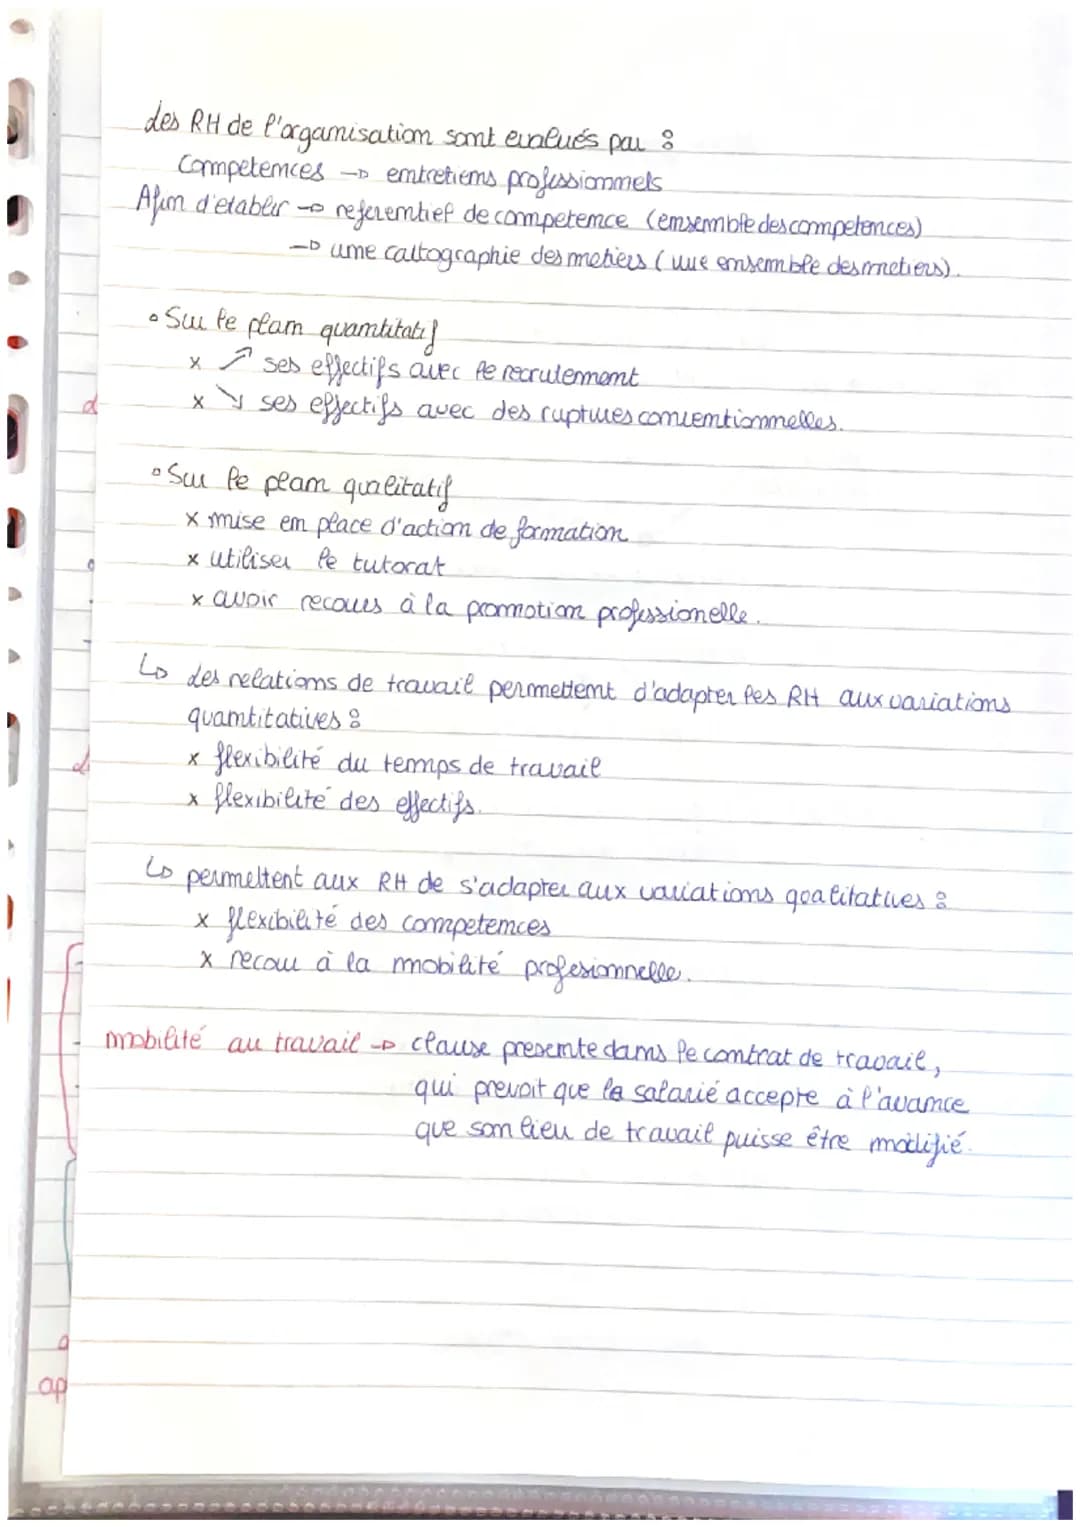 des RH de l'organisation sont evalués par :
Competences → entretiens professionnels
Afin d'etablir → referentiel de competence (ensemble des competences)
→ une cartographie des metiers (vue ensemble des metiers).
• Sur le plan quantitatif
x ↗ ses effectifs avec le recrulement
x ↘ ses effectifs avec des ruptures conventionnelles.
• Sur le plan qualitatif
x mise en place d'action de formation
x utiliser le tutorat
x avoir recours à la promotion professionelle.
↳ des relations de travail permettent d'adapter les RH aux variations
quantitatives :
x flexibilité du temps de travail
x flexibilité des effectifs.
↳ permettent aux RH de s'adapter aux variations qoalitatives :
x flexibilité des competences
x recour à la mobilité profesionnelle.
mobilité au travail → clause presente dans le contrat de travail,
qui prevoit que le salarié accepte à l'avance
que son lieu de travail puisse être modifié.
d
ap